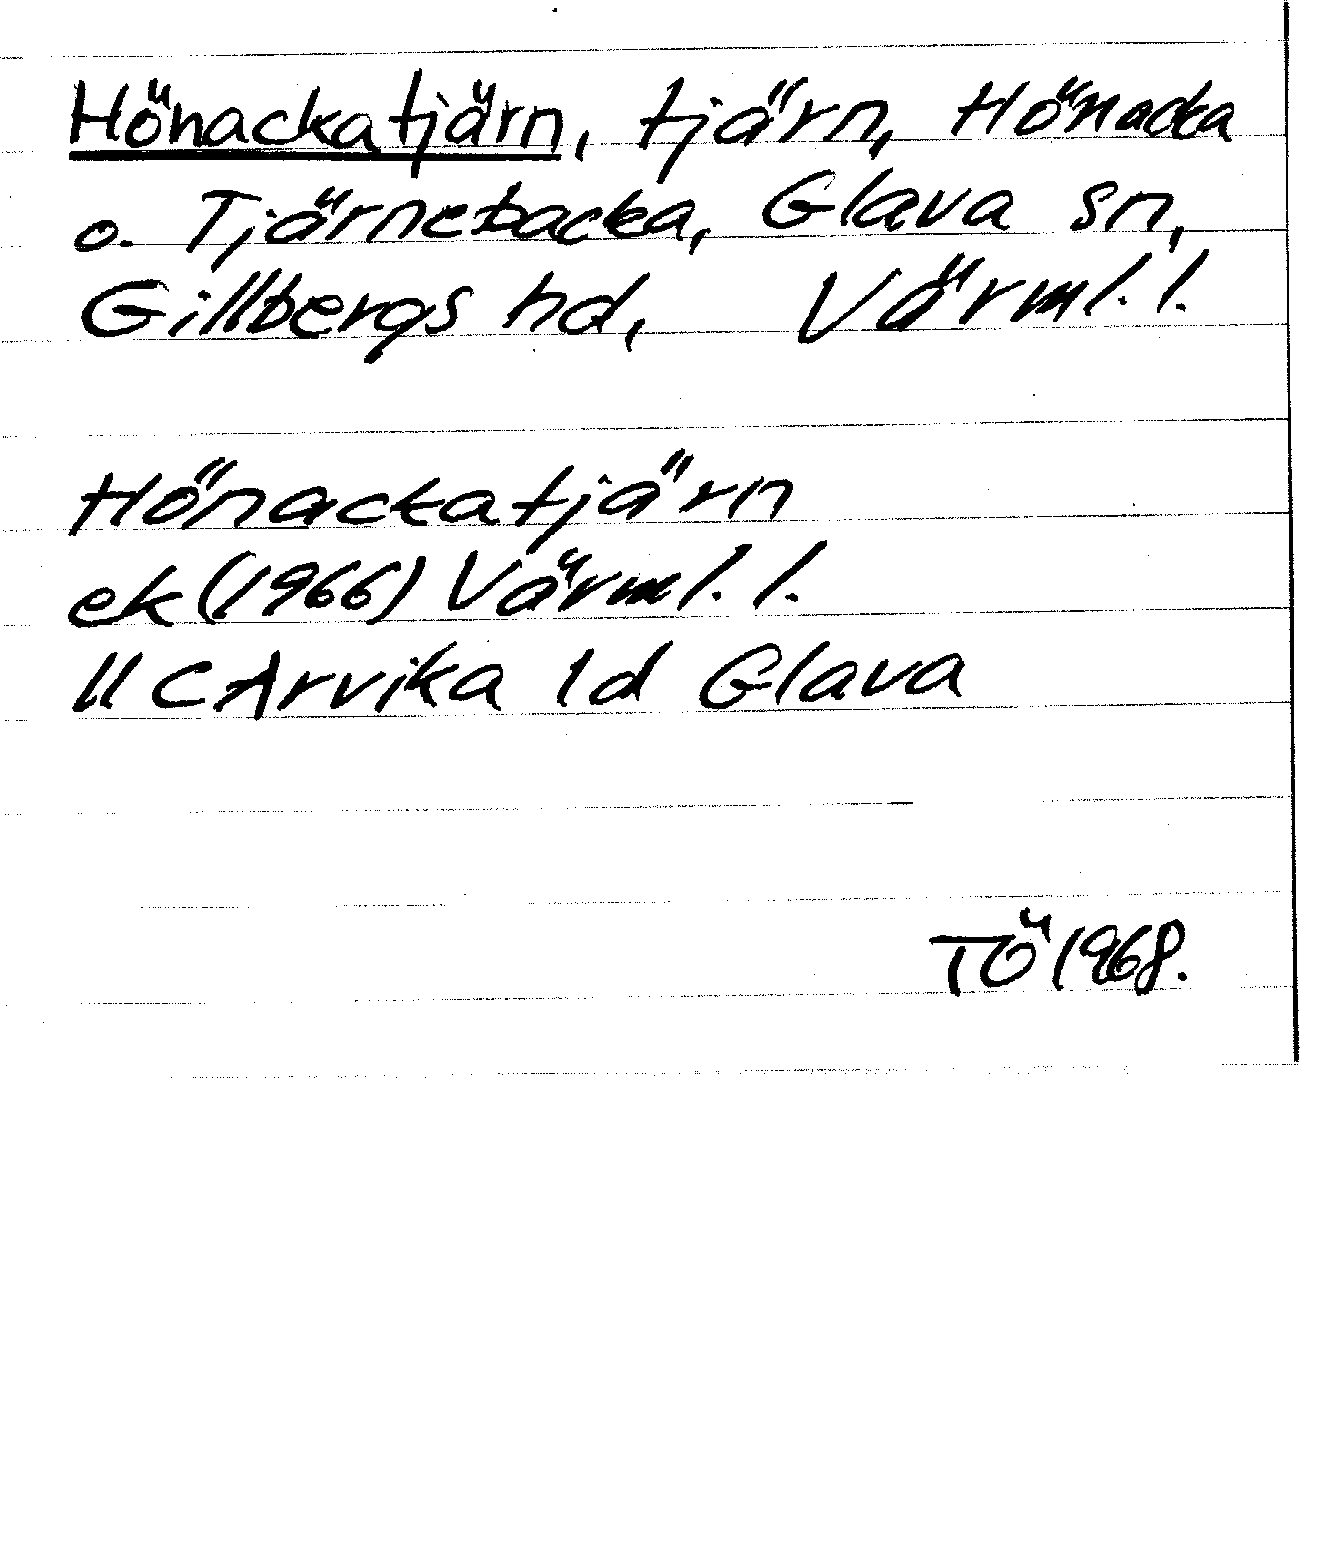 Hönackatjärn, tjärn, Hönacka
o. Tjärnebacka, Glava sn,
Gillbergs hd, Värml. l.
Hönackatjärn
ek (1966) Värml. l.
11 C Arvika 1d Glava
TÖ 1968.